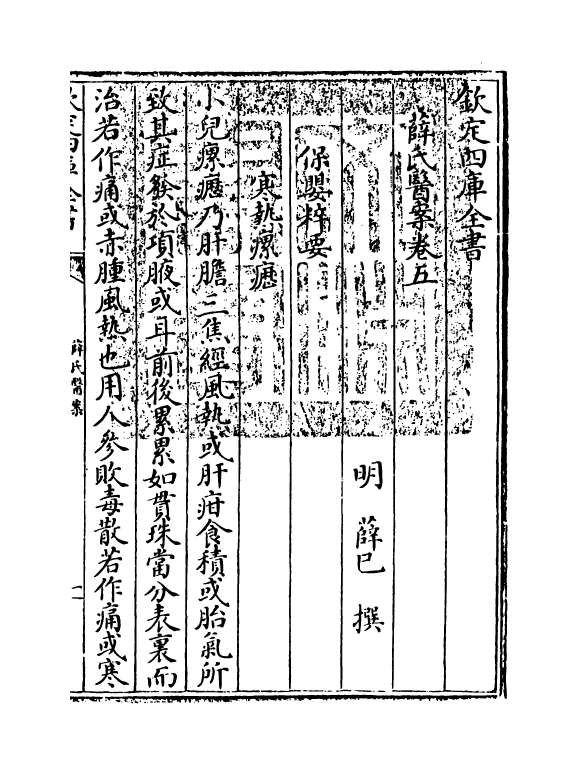 欽定四庫全書
薛氏醫案卷五
明　薛己　撰
保嬰粹要
寒熱瘰癧
小兒瘰癧乃肝膽三焦經風熱或肝疳食積或胎氣所
致其症發於項腋或耳前後累累如貫珠當分表裏而
治若作痛或赤腫風熱也用人參敗毒散若作痛或寒
欽定四庫全書
薛氏醫案